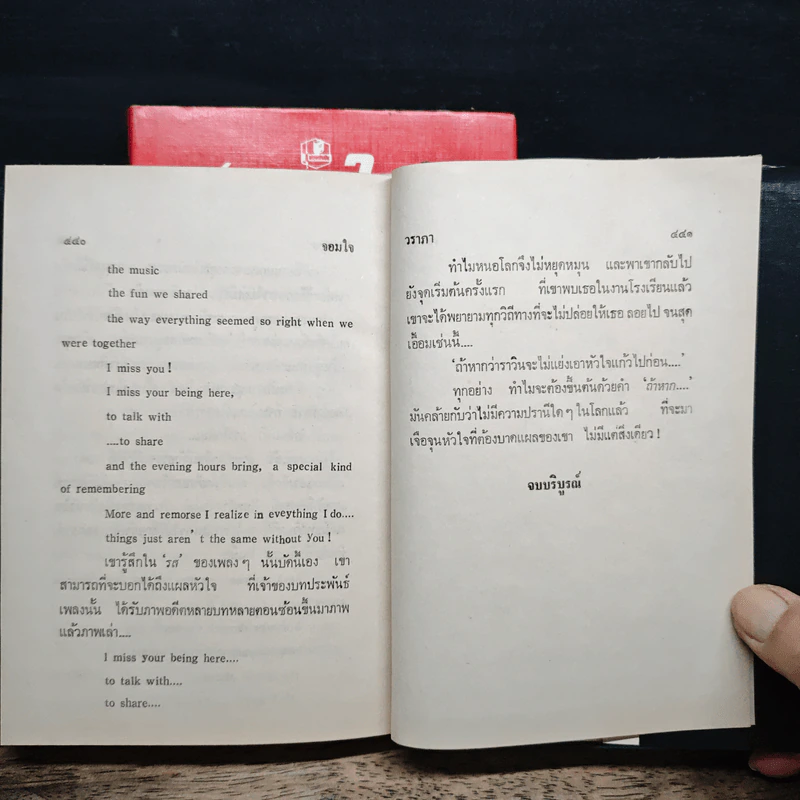 ๔๔๐ จอมใจ
the music
the fun we shared
the way everything seemed so right when we
were together
I miss you !
I miss your being here,
to talk with
....to share
and the evening hours bring, a special kind
of remembering
More and remorse I realize in eveything I do....
things just aren' t the same without you !
เขารู้สึกใน 'รส' ของเพลงๆ นั้นบัดนี้เอง เขา
สามารถที่จะบอกได้ถึงแผลหัวใจ ที่เจ้าของบทประพันธ์
เพลงนั้น ได้รับภาพอดีตหลายบทหลายตอนซ้อนขึ้นมาภาพ
แล้วภาพเล่า....
I miss your being here....
to talk with....
to share....
วราภา ๔๔๑
ทำไมหนอโลกจึงไม่หยุดหมุน และพาเขากลับไป
ยังจุดเริ่มต้นครั้งแรก ที่เขาพบเธอในงานโรงเรียนแล้ว
เขาจะได้พยายามทุกวิถีทางที่จะไม่ปล่อยให้เธอ ลอยไป จนสุด
เอื้อมเช่นนี้....
'ถ้าหากว่าราวินจะไม่แย่งเอาหัวใจแก้วไปก่อน....'
ทุกอย่าง ทำไมจะต้องขึ้นต้นด้วยคำ 'ถ้าหาก....'
มันคล้ายกับว่าไม่มีความปรานีใดๆ ในโลกแล้ว ที่จะมา
เจือจุนหัวใจที่ต้องบาดแผลของเขา ไม่มีแต่สิ่งเดียว !
จบบริบูรณ์